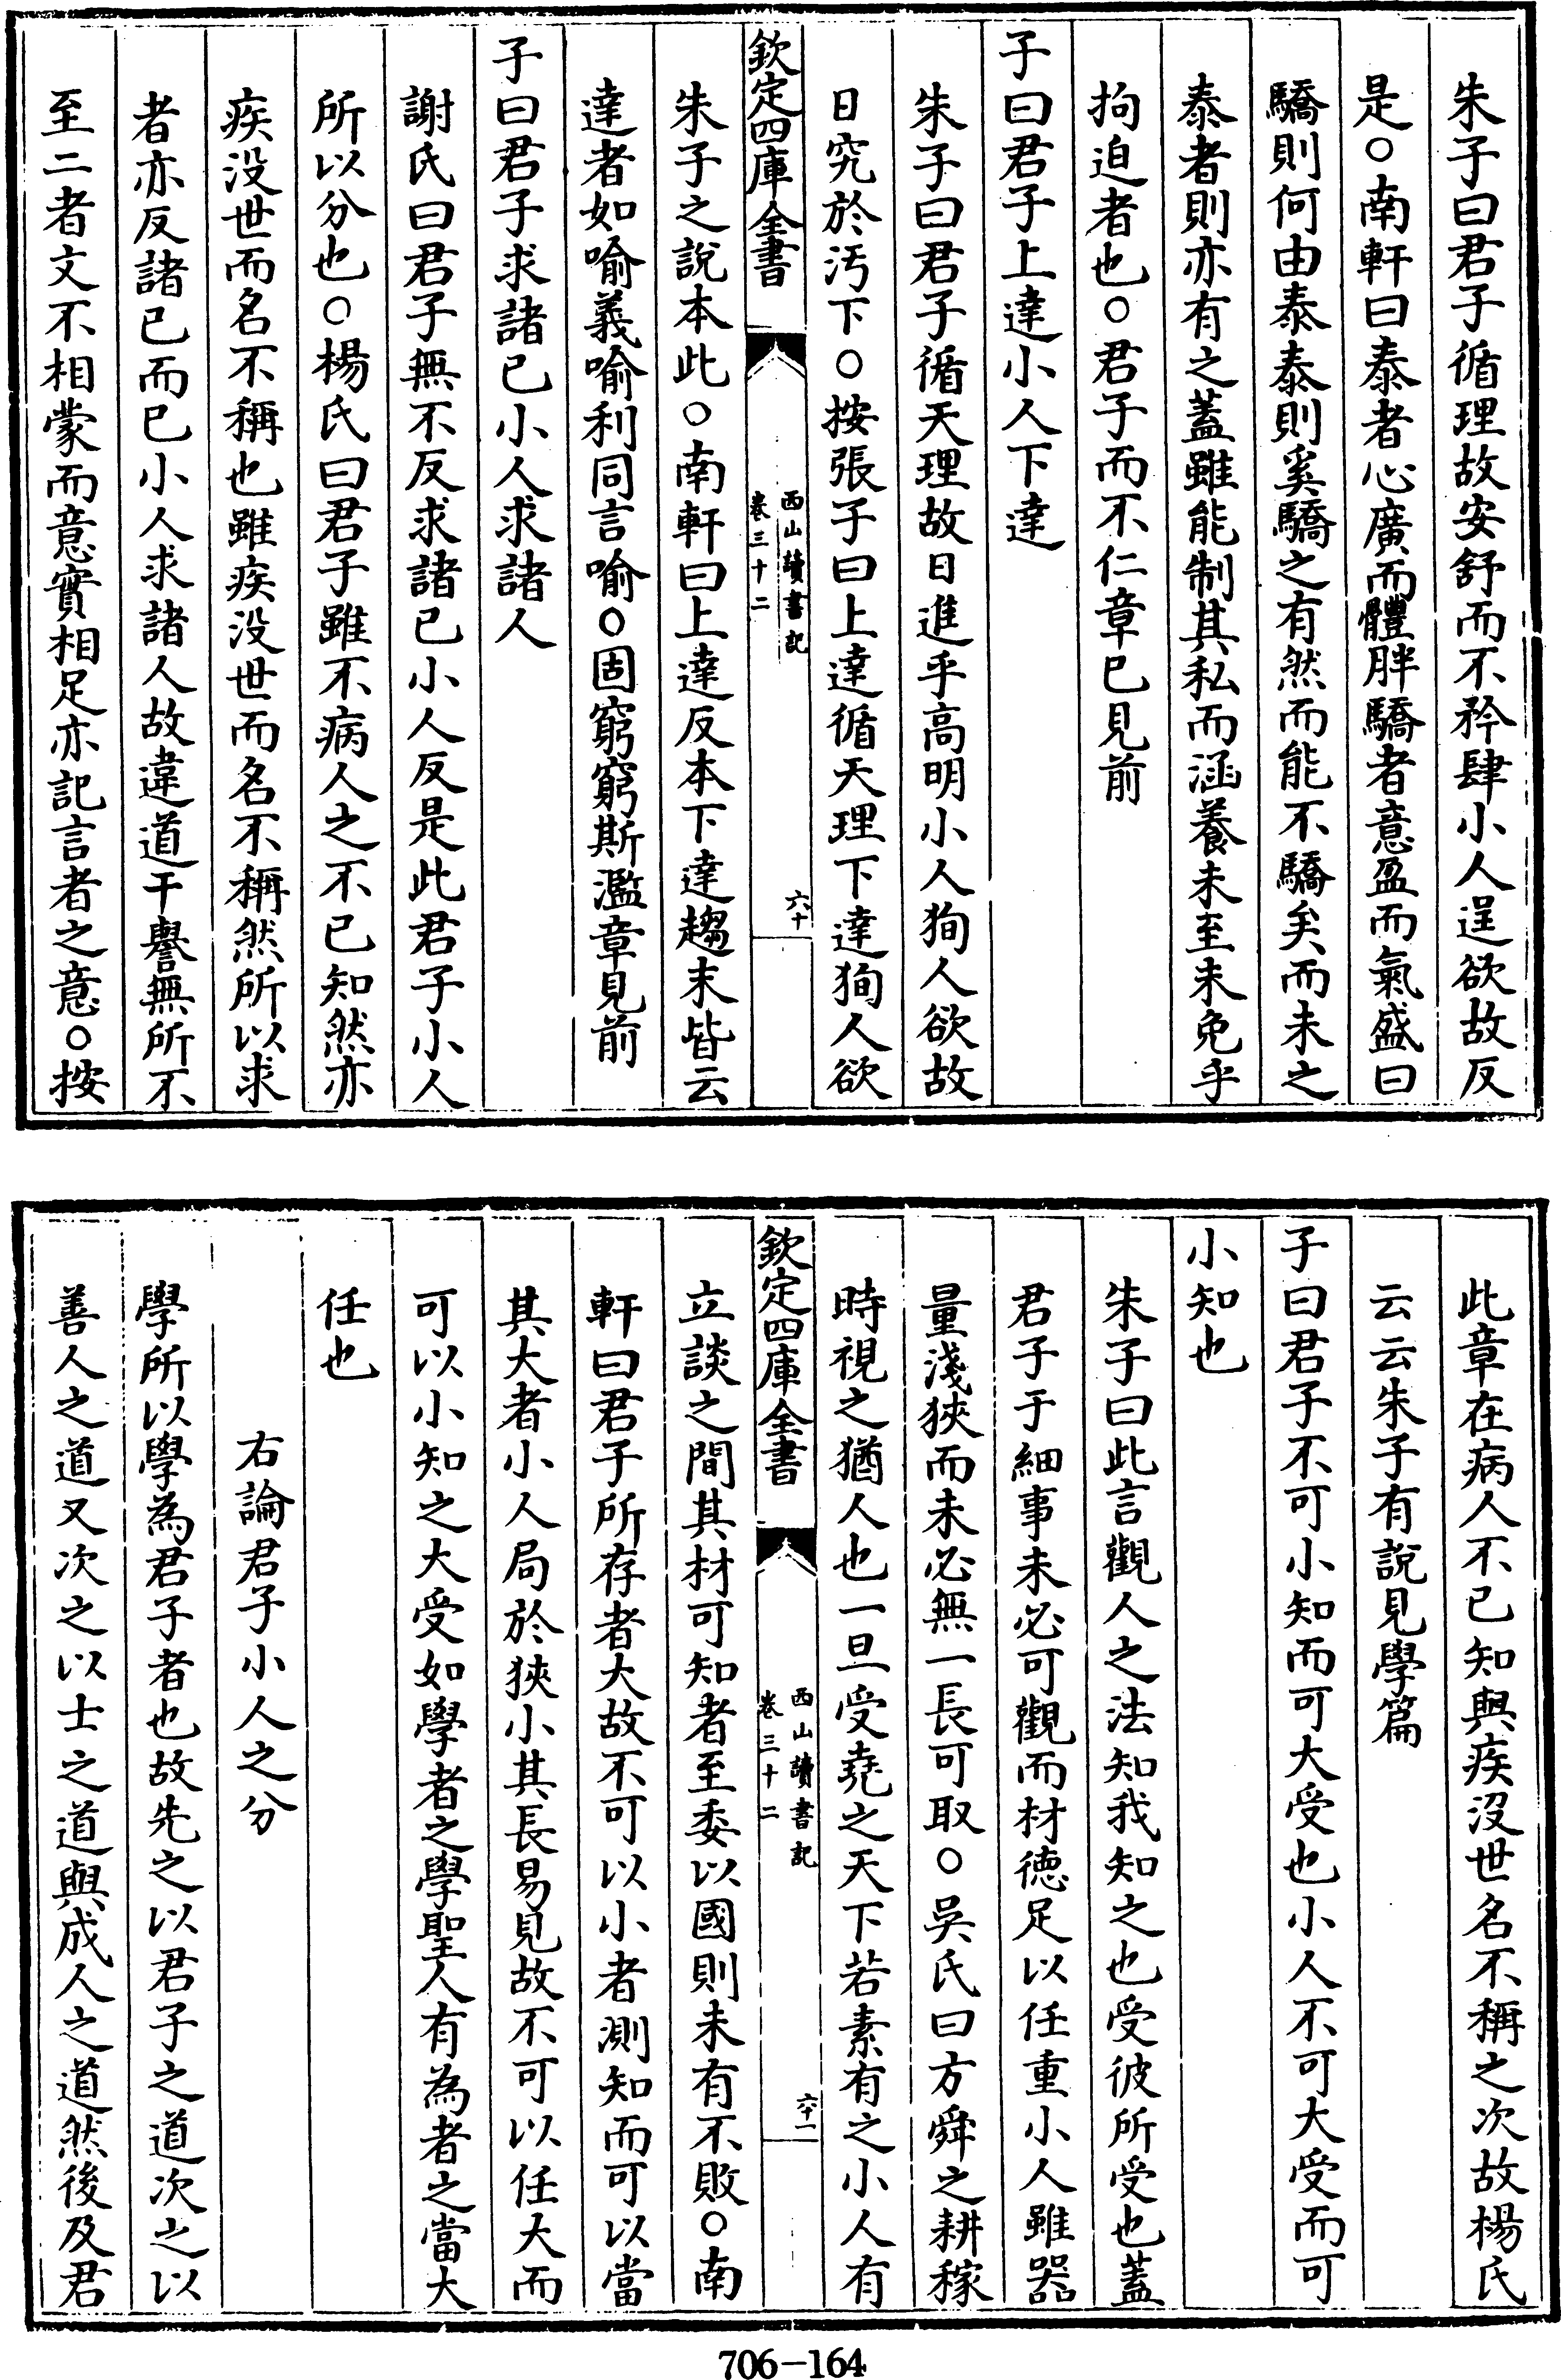 朱子曰君子循理故安舒而不矜肆小人逞欲故反
是○南軒曰泰者心廣而體胖驕者意盈而氣盛曰
驕則何由泰泰則奚驕之有然而能不驕矣而未之
泰者則亦有之蓋雖能制其私而涵養未至未免乎
拘迫者也○君子而不仁章已見前
子曰君子上達小人下達
朱子曰君子循天理故日進乎高明小人狥人欲故
日究於汚下○按張子曰上達循天理下達狥人欲
欽定四庫全書
西山讀書記
卷三十二
六十
朱子之說本此○南軒曰上達反本下達趨末皆云
達者如喻義喻利同言喻○固窮窮斯濫章見前
子曰君子求諸已小人求諸人
謝氏曰君子無不反求諸已小人反是此君子小人
所以分也○楊氏曰君子雖不病人之不已知然亦
疾没世而名不稱也雖疾没世而名不稱然所以求
者亦反諸已而已小人求諸人故違道干譽無所不
至二者文不相蒙而意實相足亦記言者之意○按
此章在病人不已知與疾没世名不稱之次故楊氏
云云朱子有說見學篇
子曰君子不可小知而可大受也小人不可大受而可
小知也
朱子曰此言觀人之法知我知之也受彼所受也蓋
君子于細事未必可觀而材德足以任重小人雖器
量淺狹而未必無一長可取○吳氏曰方舜之耕稼
時視之猶人也一旦受堯之天下若素有之小人有
欽定四庫全書
西山讀書記
卷三十二
六十一
立談之間其材可知者至委以國則未有不敗○南
軒曰君子所存者大故不可以小者測知而可以當
其大者小人局於狹小其長易見故不可以任大而
可以小知之大受如學者之學聖人有為者之當大
任也
右論君子小人之分
學所以學為君子者也故先之以君子之道次之以
善人之道又次之以士之道與成人之道然後及君
706-164